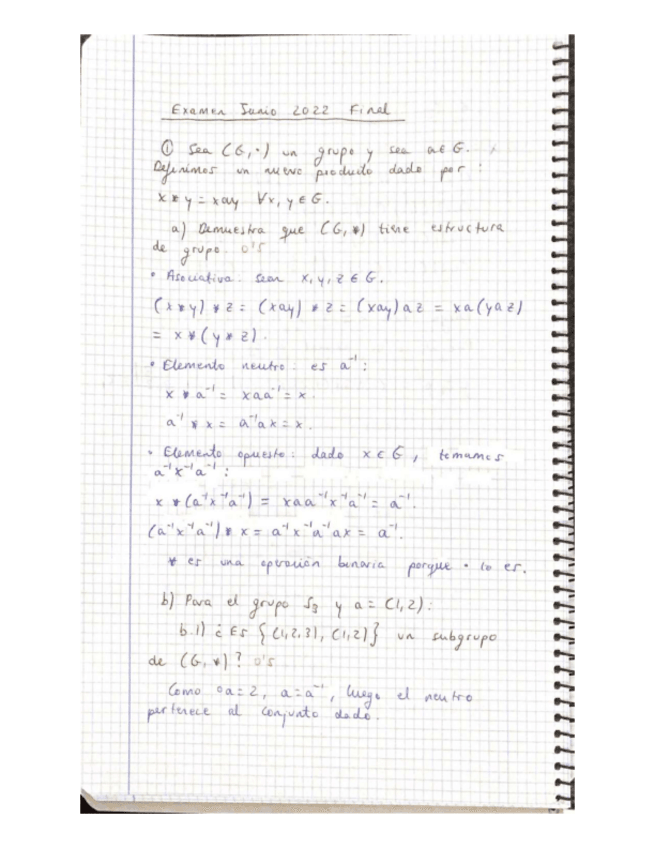 Examen Junio 2022 Final
① Sea (G,·) un grupo y sea a∈G.
Definimos un nuevo producto dado por :
x * y = xay ∀x, y ∈ G.
a) Demuestra que (G,*) tiene estructura
de grupo. 0'5
• Asociativa. Sean x, y, z ∈ G.
(x * y) * z = (xay) * z = (xay) a z = xa(yaz)
= x * (y * z).
• Elemento neutro: es a⁻¹:
x * a⁻¹ = xaa⁻¹ = x.
a⁻¹ * x = a⁻¹ax = x.
• Elemento opuesto: dado x ∈ G, tomamos
a⁻¹x⁻¹a⁻¹:
x * (a⁻¹x⁻¹a⁻¹) = xaa⁻¹x⁻¹a⁻¹ = a⁻¹.
(a⁻¹x⁻¹a⁻¹) * x = a⁻¹x⁻¹a⁻¹ax = a⁻¹.
* es una operación binaria porque · lo es.
b) Para el grupo S₃ y a = (1,2):
b.1) ¿Es {(1,2,3), (1,2)} un subgrupo
de (G,*)? 0'5
Como °a=2, a=a⁻¹, luego el neutro
pertenece al conjunto dado.